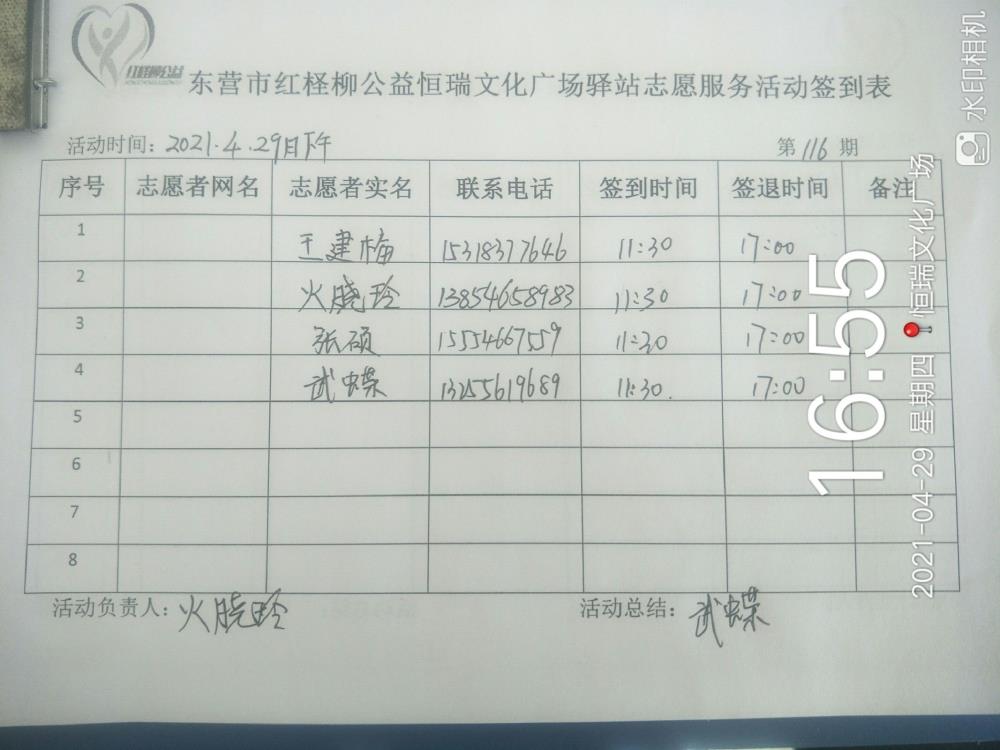 红柽柳公益
东营市红柽柳公益恒瑞文化广场驿站志愿服务活动签到表
活动时间：2021.4.29日下午 第116期
序号 志愿者网名 志愿者实名 联系电话 签到时间 签退时间 备注
1 王建梅 15318377646 11:30 17:00
2 火晓玲 13854658983 11:30 17:00
3 张硕 15554667559 11:30 17:00
4 武蝶 13255619689 11:30. 17:00
5
6
7
8
活动负责人：火晓玲 活动总结：武蝶
16:55
2021-04-29 星期四 恒瑞文化广场
水印相机